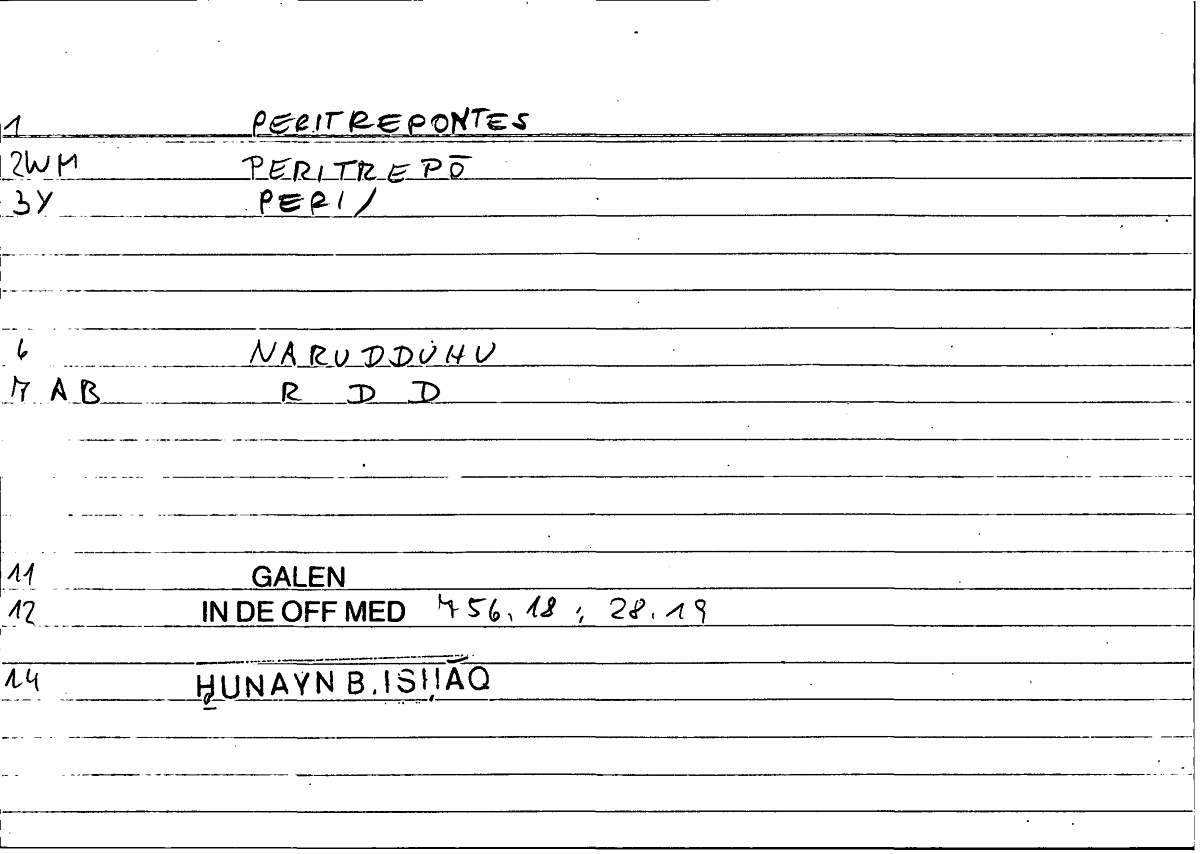 1 PERITREPONTES
2WM PERITREPŌ
3Y PERI/
6 NARUDDUHU
7 AB R D D
11 GALEN
12 IN DE OFF MED 756.18 ; 28.19
14 ḤUNAYN B. ISḤĀQ